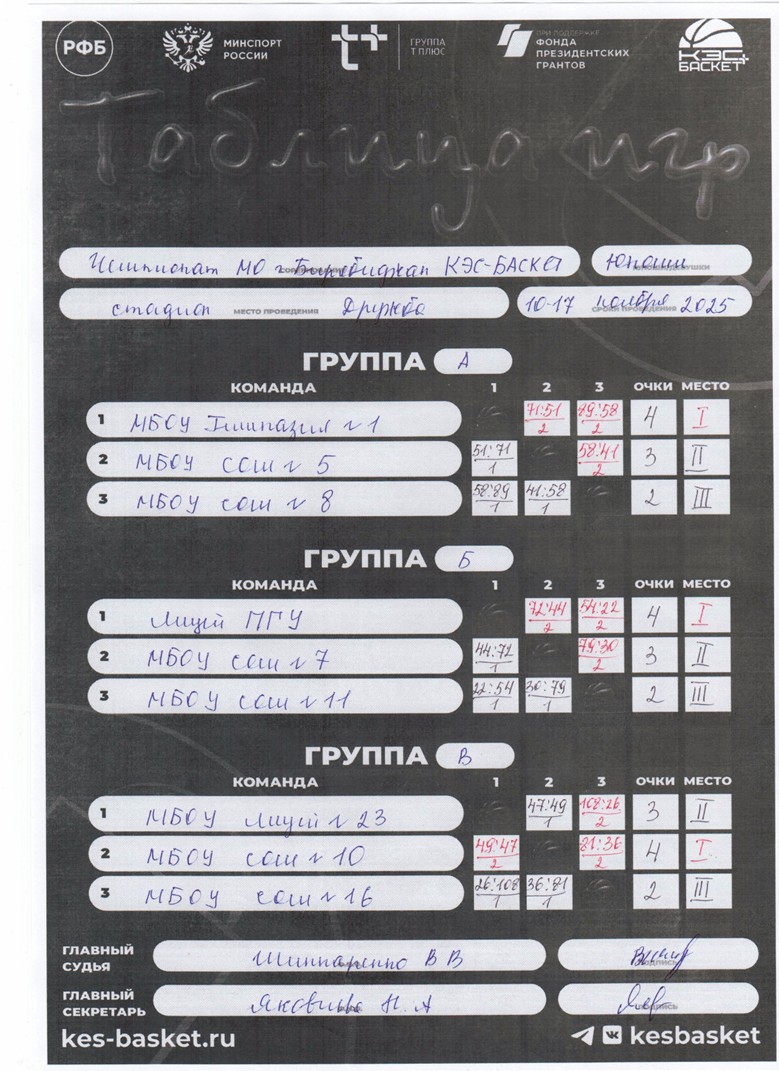 РФБ
МИНСПОРТ
РОССИИ
ГРУППА
Т ПЛЮС
ПРИ ПОДДЕРЖКЕ
ФОНДА
ПРЕЗИДЕНТСКИХ
ГРАНТОВ
КЭС-
БАСКЕТ
Таблица игр
Чемпионат МО г. Биробиджан КЭС-БАСКЕТ Юноши
стадион МЕСТО ПРОВЕДЕНИЯ Дружба 10-17 ноября СРОКИ ПРОВЕДЕНИЯ 2025
ГРУППА А
КОМАНДА 1 2 3 ОЧКИ МЕСТО
1 МБОУ Гимназия № 1 71:51 2 89:58 2 4 I
2 МБОУ сош № 5 51:71 1 58:41 2 3 II
3 МБОУ сош № 8 58:89 1 41:58 1 2 III
ГРУППА Б
КОМАНДА 1 2 3 ОЧКИ МЕСТО
1 Лицей ПГУ 72:44 2 54:22 2 4 I
2 МБОУ сош № 7 44:72 1 79:30 2 3 II
3 МБОУ сош № 11 22:54 1 30:79 1 2 III
ГРУППА В
КОМАНДА 1 2 3 ОЧКИ МЕСТО
1 МБОУ лицей № 23 47:49 1 108:26 2 3 II
2 МБОУ сош № 10 49:47 2 81:36 2 4 I
3 МБОУ сош № 16 26:108 1 36:81 1 2 III
ГЛАВНЫЙ
СУДЬЯ В В
ГЛАВНЫЙ
СЕКРЕТАРЬ Н. А
kes-basket.ru kesbasket